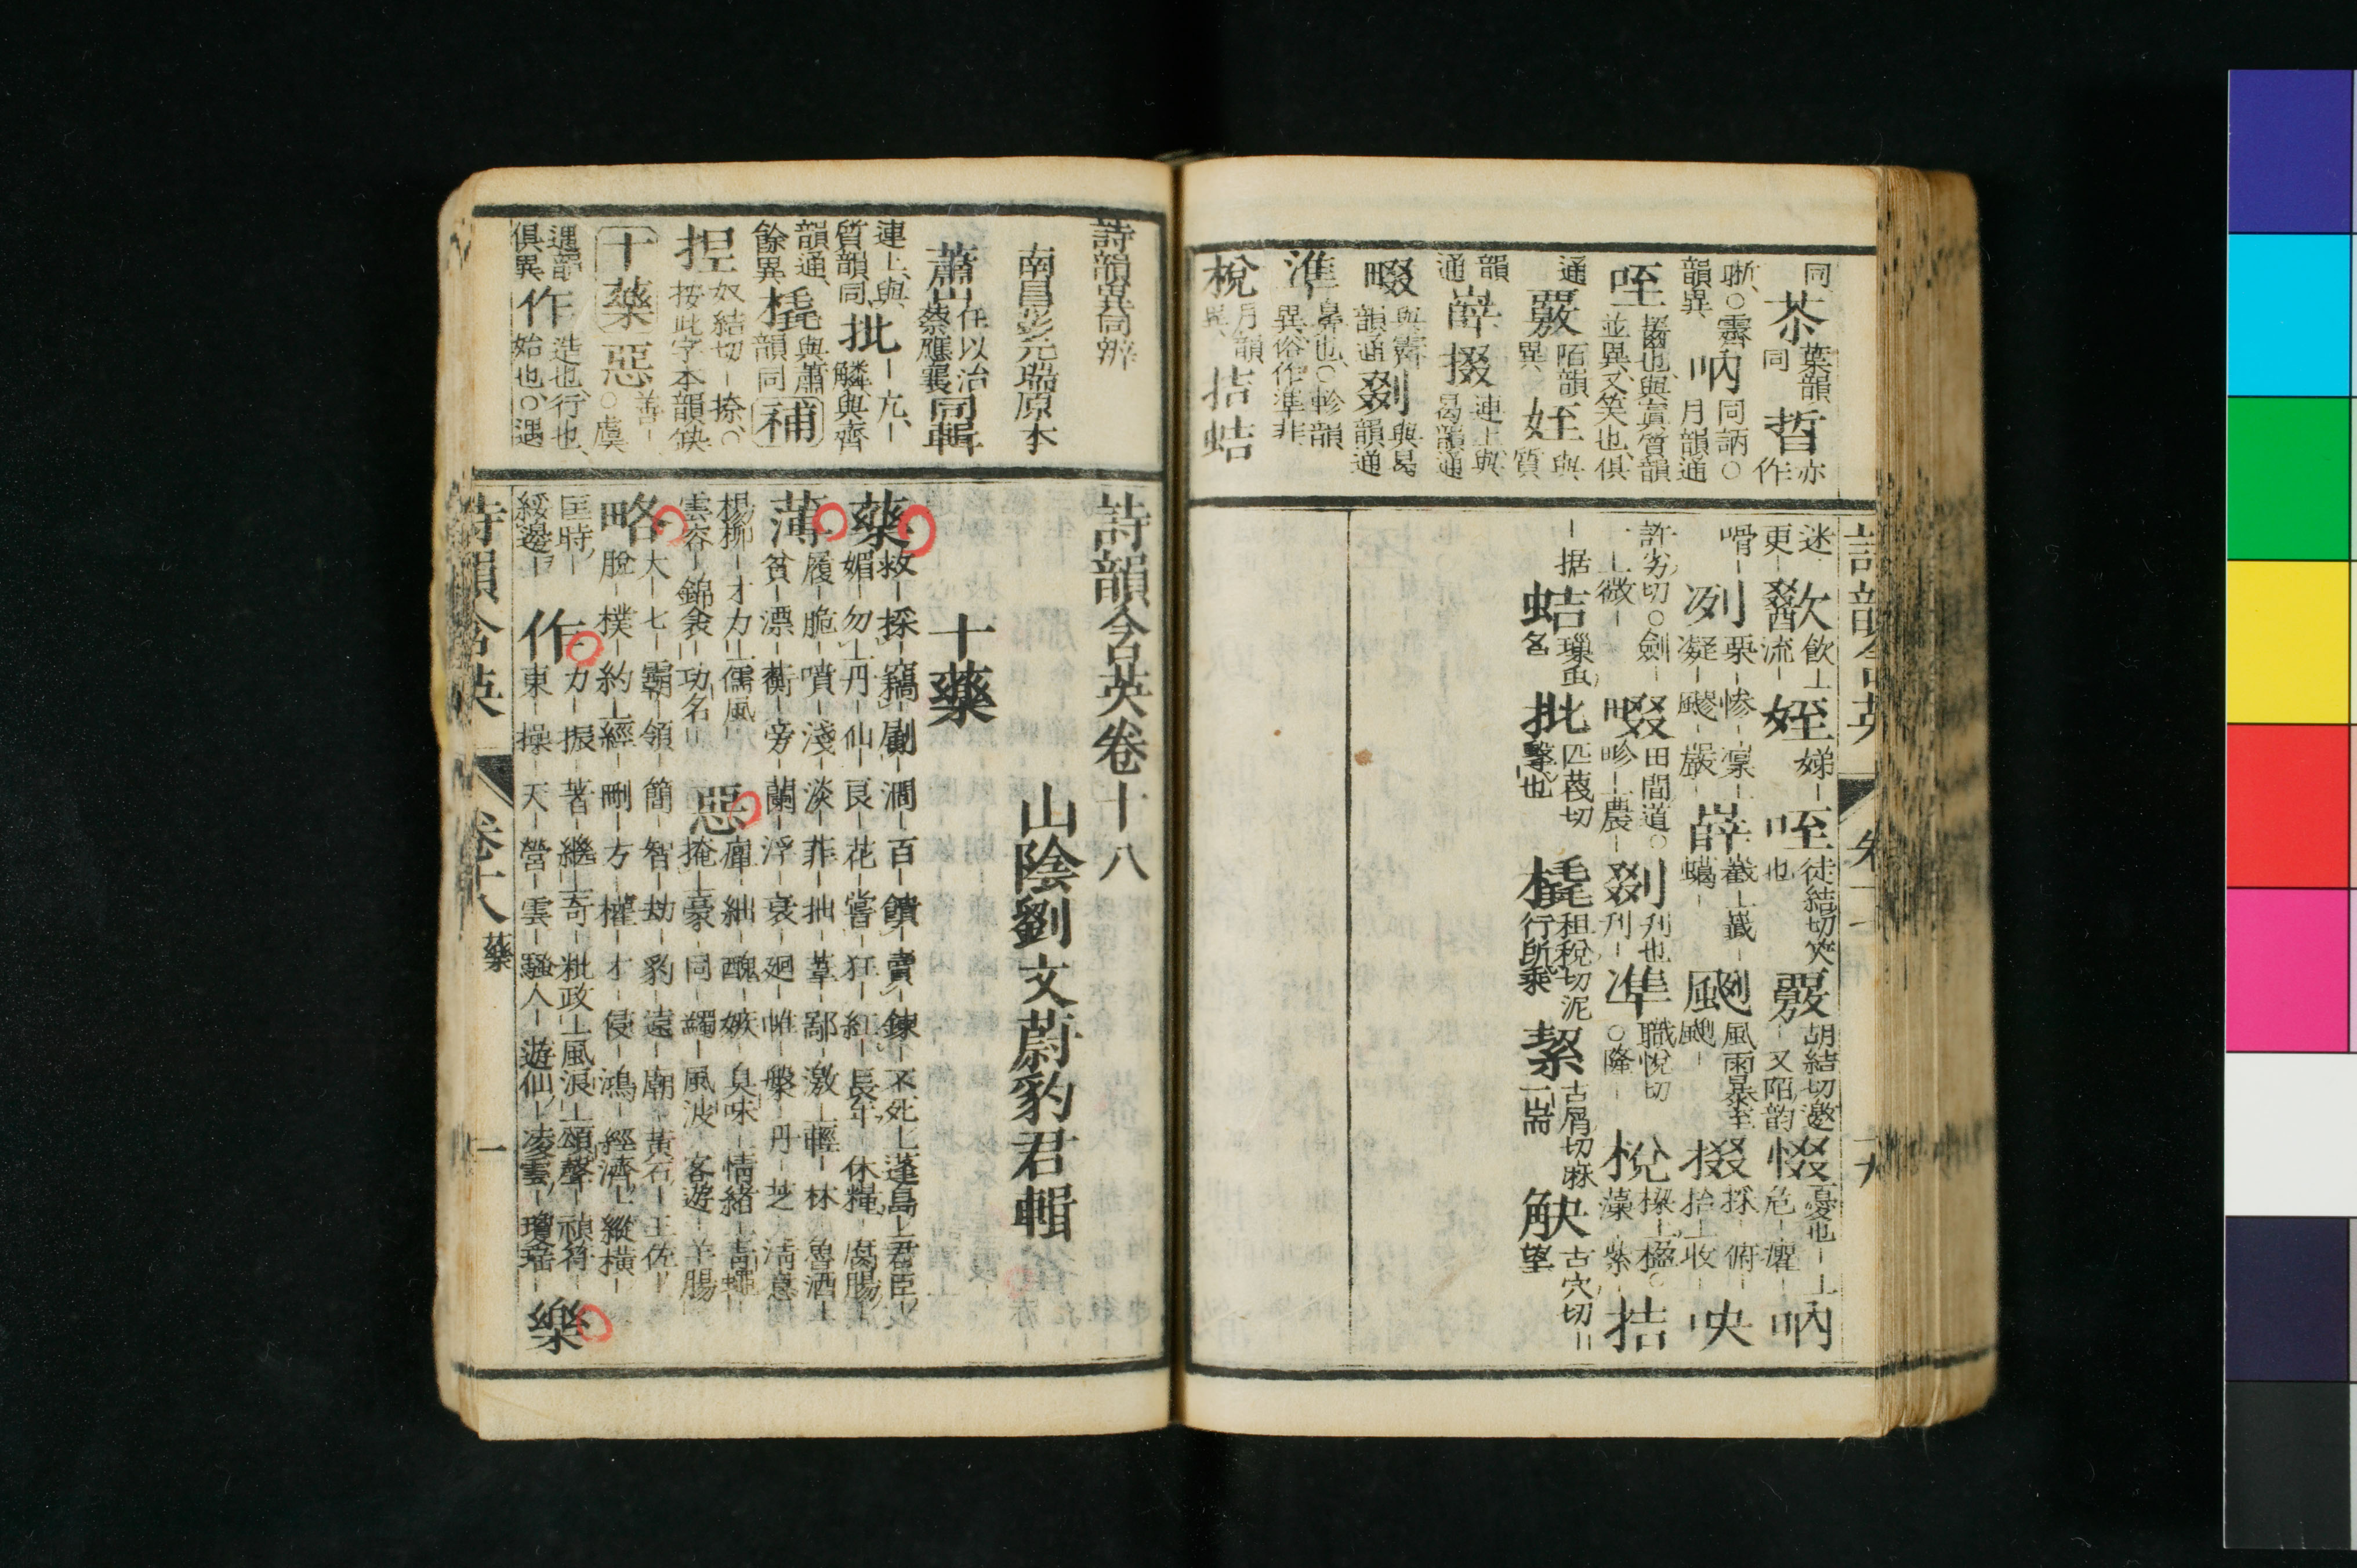 同茶葉韻同晳亦作
哳○霽韻異吶同訥○月韻通
咥齧也與寘質韻並異又笑也俱
通覈陌韻異姪與質
韻通嶭掇連上與曷韻通
畷與霽韻通剟與曷韻通
準鼻也○軫韻異俗作準非
梲月韻異拮蛣
迷更歠飲流姪娣咥徒結切笑也覈胡結切邀又陌韵惙憂也危癯吶
㗩冽栗慘凜凝飂嚴嶭巀嶻巁颲風雨暴至颲掇採俯拾收吷
許劣切○劍一微畷田間道○畛農剟刊也刋準職悅切○隆梲梁楹○藻紫拮
据蛣瓏虫名批匹薎切擊也橇租稅切泥行所乘絜古屑切麻一耑觖古穴切望
詩韻異同辨
南昌彭元瑞原本
蕭山任以治蔡應襄同輯
連上與質韻同批亢鱗與齊
韻通餘異橇與蕭韻同補
捏奴結切捺○按此字本韻缺
十藥惡善○虞
遇韻俱異作造也行也始也○遇
詩韻含英卷十八
山陰劉文蔚豹君輯
十藥
藥救採竊劚澗百饋賣鍊不死蓬島君臣
媚勿丹仙艮花嘗狂紅長年休糧腐腸
薄履脆噴淺淡菲拙葦鄙激輕林魯酒
貧漂蘅旁蘭浮衰廻帷槃丹芝淸意
楊柳才力儒風惡癉絀醜嫉臭味情緒靑蠅
雲容錦衾功名掩豪同蠲風波客遊羊腸
略大七霸領簡智刼豹遠廟黃石王佐
脫樸約經剛方權才侵鴻經濟縱橫
匡時作力振著繼奇秕政風浪頌聲禎符
綏邊東操天營雲騷人遊仙凌雲瓊瑤樂
詩韻含英 卷十八 藥 一